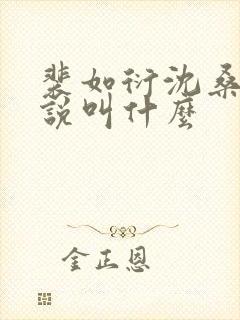 裴如衍沈桑
說叫什麼
金正恩